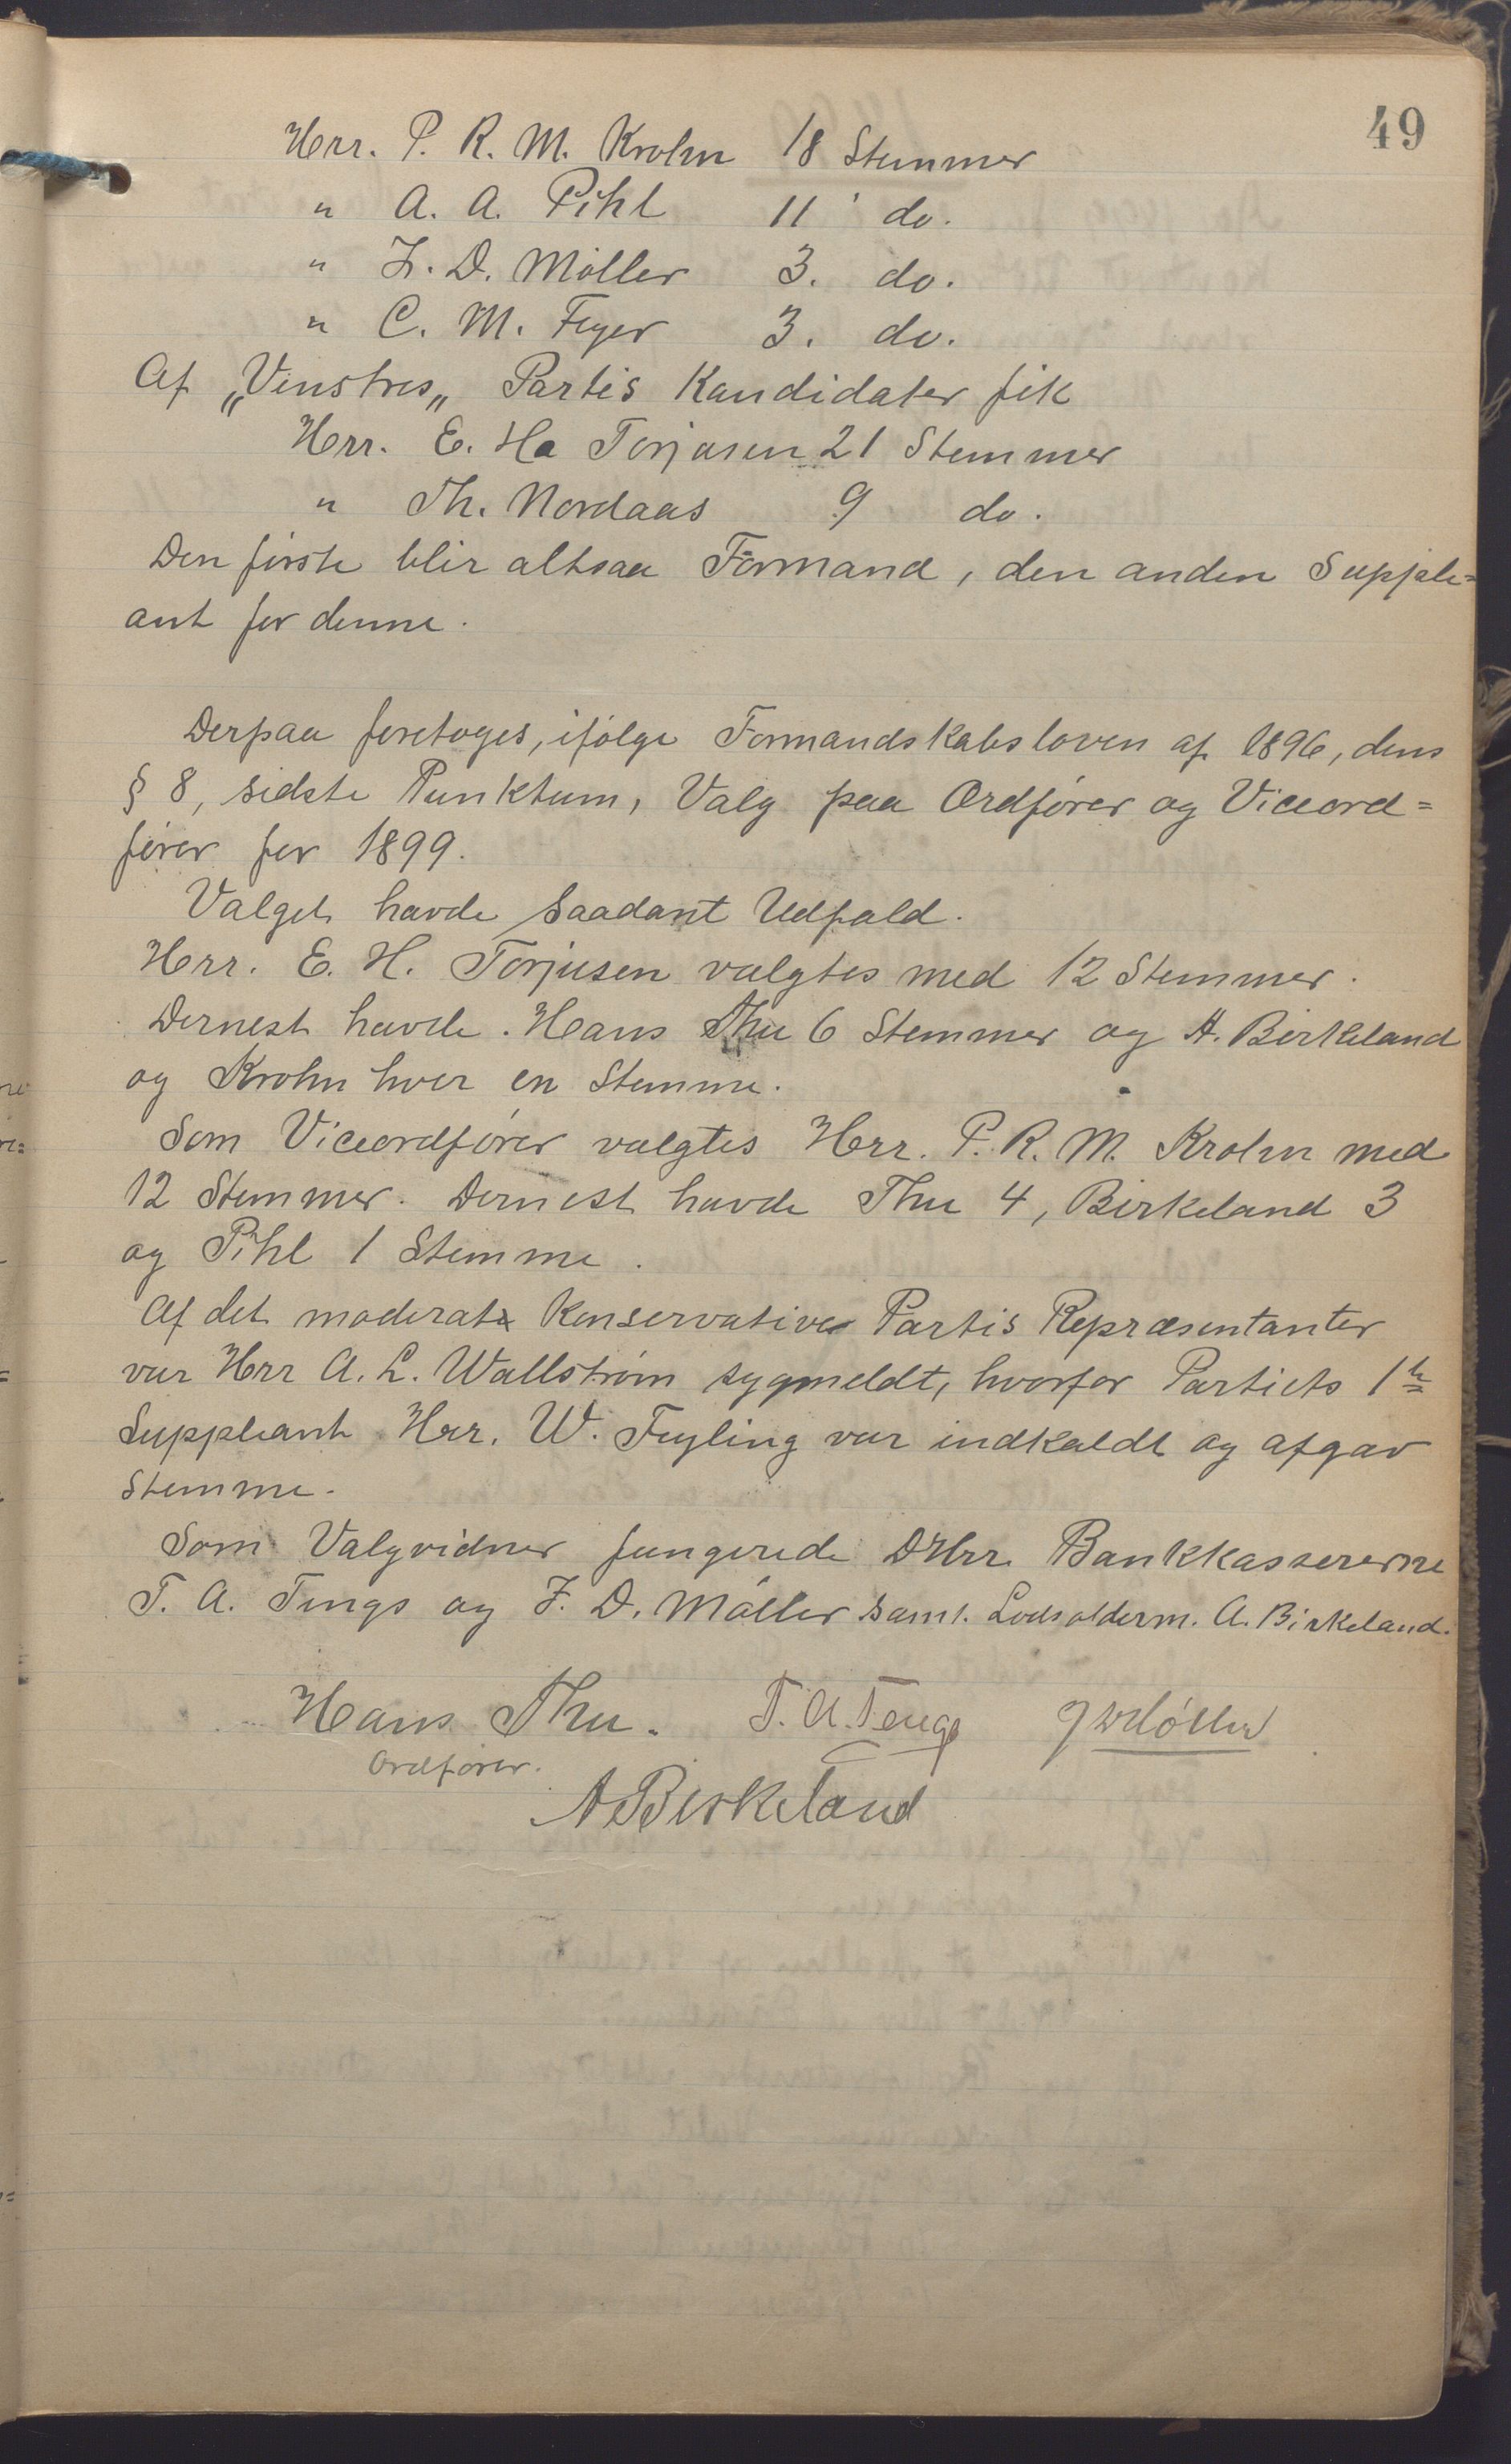 49
Herr. P. R. M. Krohn 18 Stemmer
" A. A. Pihl 11 do.
" F. D. Møller 3. do.
" C. M. Feyer 3. do.
Af „Vinstres„ Partis Kandidater fik
Herr. E. Ha Torjusen 21 Stemmer
" Th. Nordaas 9 do.
Den første blir altsaa Formand, den anden Supple=
ant for denne.
Derpaa foretoges, ifølge Formandskabsloven af 1896, dens
§ 8, sidste Punktum, Valg paa Ordfører og Viceord=
fører for 1899.
Valget havde saadant Udfald.
Herr. E. H. Torjusen valgtes med 12 Stemmer.
Dernest havde Hans Thu 6 Stemmer og A. Birkeland
og Krohn hver en Stemme.
Som Viceordfører valgtes Herr. P. R. M. Krohn med
12 Stemmer. Dernest havde Thu 4, Birkeland 3
og Pihl 1 Stemme.
Af det moderat Konservative Partis Repræsentanter
var Herr A. L. Wallstrøm sygmeldt, hvorfor Partiets 1te
Suppleant Herr. W. Feyling var indkaldt og afgav
Stemme.
Som Valgvidner fungerede DHrr. Bankkassererne
T. A. Tengs og F. D. Møller samt Lodsolderm. A. Birkeland.
Hans Thu. T. A. Tengs Møller
Ordfører.
A Birkeland